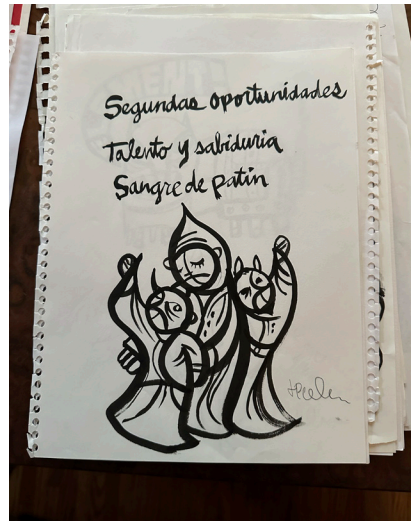 Segundas oportunidades
Talento y sabiduria
Sangre de patin